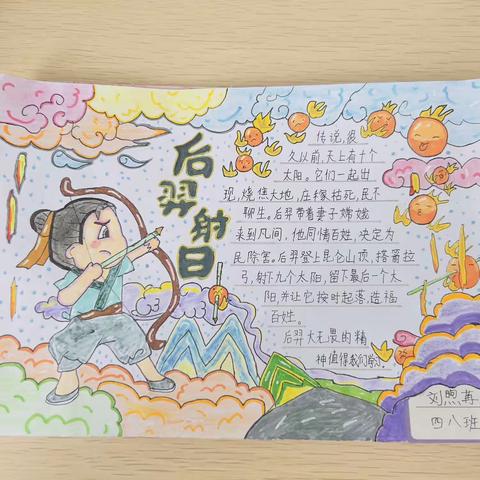 后羿射日
传说,很
久以前,天上有十个
太阳。它们一起出
现,烧焦大地,庄稼枯死,民不
聊生。后羿带着妻子嫦娥
来到凡间,他同情百姓,决定为
民除害。后羿登上昆仑山顶,搭箭拉
弓,射下九个太阳,留下最后一个太
阳,并让它按时起落,造福
百姓。
后羿大无畏的精
神值得我们学习。
刘煦苒
四八班